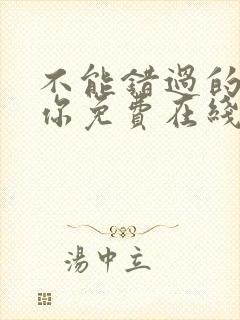 不能錯過的
你免費在綫
湯中立